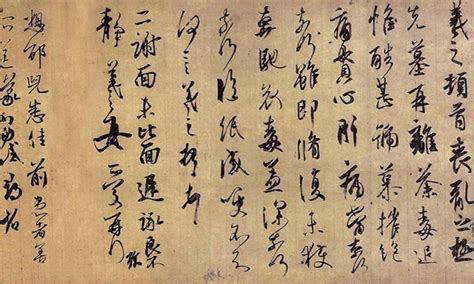 羲之頓首喪亂之極
先墓再離荼毒追
惟酷甚號慕摧絶
痛貫心肝痛當奈何
奈何雖即脩復未獲
奔馳哀毒益深奈何
奈何臨紙感哽不知
何言羲之頓首頓首
二謝面未比面遲詠良不
靜羲之女愛再拜
想邰兒悉佳前患者善